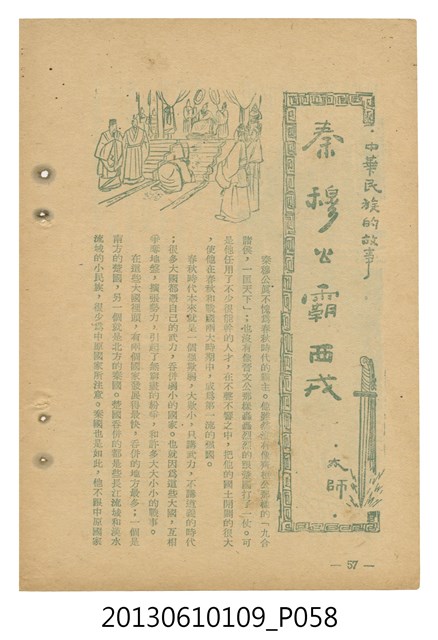 ·中華民族的故事·
秦穆公霸西戎
·太師·
秦穆公眞不愧爲春秋時代的霸主。他雖然沒有像齊桓公那樣的「九合
諸侯，一匡天下」；也沒有像晉文公那樣轟轟烈烈的
是他任用了不少很能幹的人才，在不聲不響之中，把他的國土開闢的很大
，使他在春秋和戰國兩大時期中，成爲第一流的強國。
春秋時代本來就是一個強欺弱，大欺小，只講武力，不講道義的時代
；很多大國都憑自己的武力，吞併弱小的國家。也就因爲這些大國，互相
爭奪地盤，擴張勢力，引起了
在這些大國裡頭，有兩個國家發展得最快，吞併的地方最多：一個是
南方的楚國，另一個就是北方的秦國。楚國吞併的都是些長江流域和淡水
流域的小民族，很少爲中原國家所注意。秦國也是如此，他不跟中原國家
— 57 —
20130610109_P058